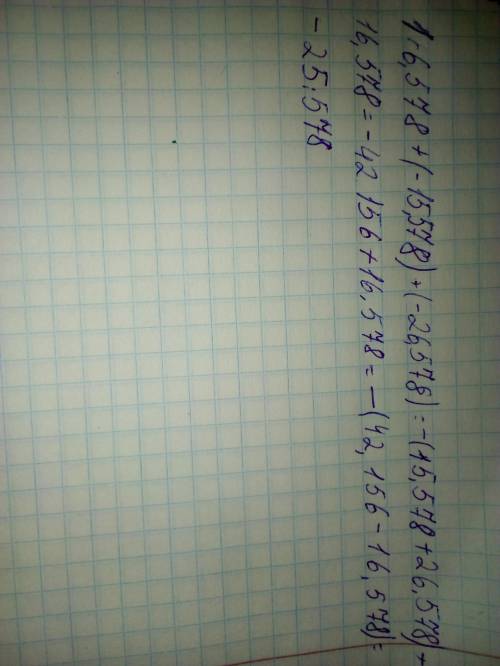 16,578+(-15,578)+(-26,578)=-(15,578+26,578)+
16,578=-42 156+16,578=-(42,156-16,578)=
-25,578